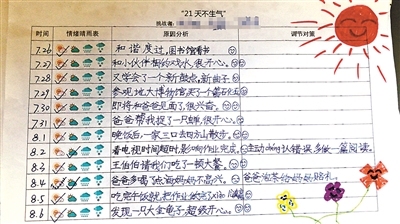 "21天不生气"
挑战者：
时间 情绪晴雨表 原因分析 调节对策
7.26 和谐度过，图书馆看书
7.27 和小伙伴相约戏水，很开心。
7.28 又学会了一个新鼓点，新曲子
7.29 参观地大博物馆买了一个萤石
7.30 即将和爸爸见面了，很兴奋。
7.31 爸爸帮我捉了一只蝉，很开心。
8.1 晚饭后，一家三口去南山散步。
8.2 看电视时间超时，影响作业完成。 主动dòng认错误，多做一篇阅读。
8.3 王伯伯请我们吃了一顿大餐。
8.4 爸爸多喝了点酒，妈妈不高兴。 爸爸泡茶给妈妈赔礼。
8.5 吃完午饭就把作业做完了
8.6 发现一只大金龟子，超级开心。